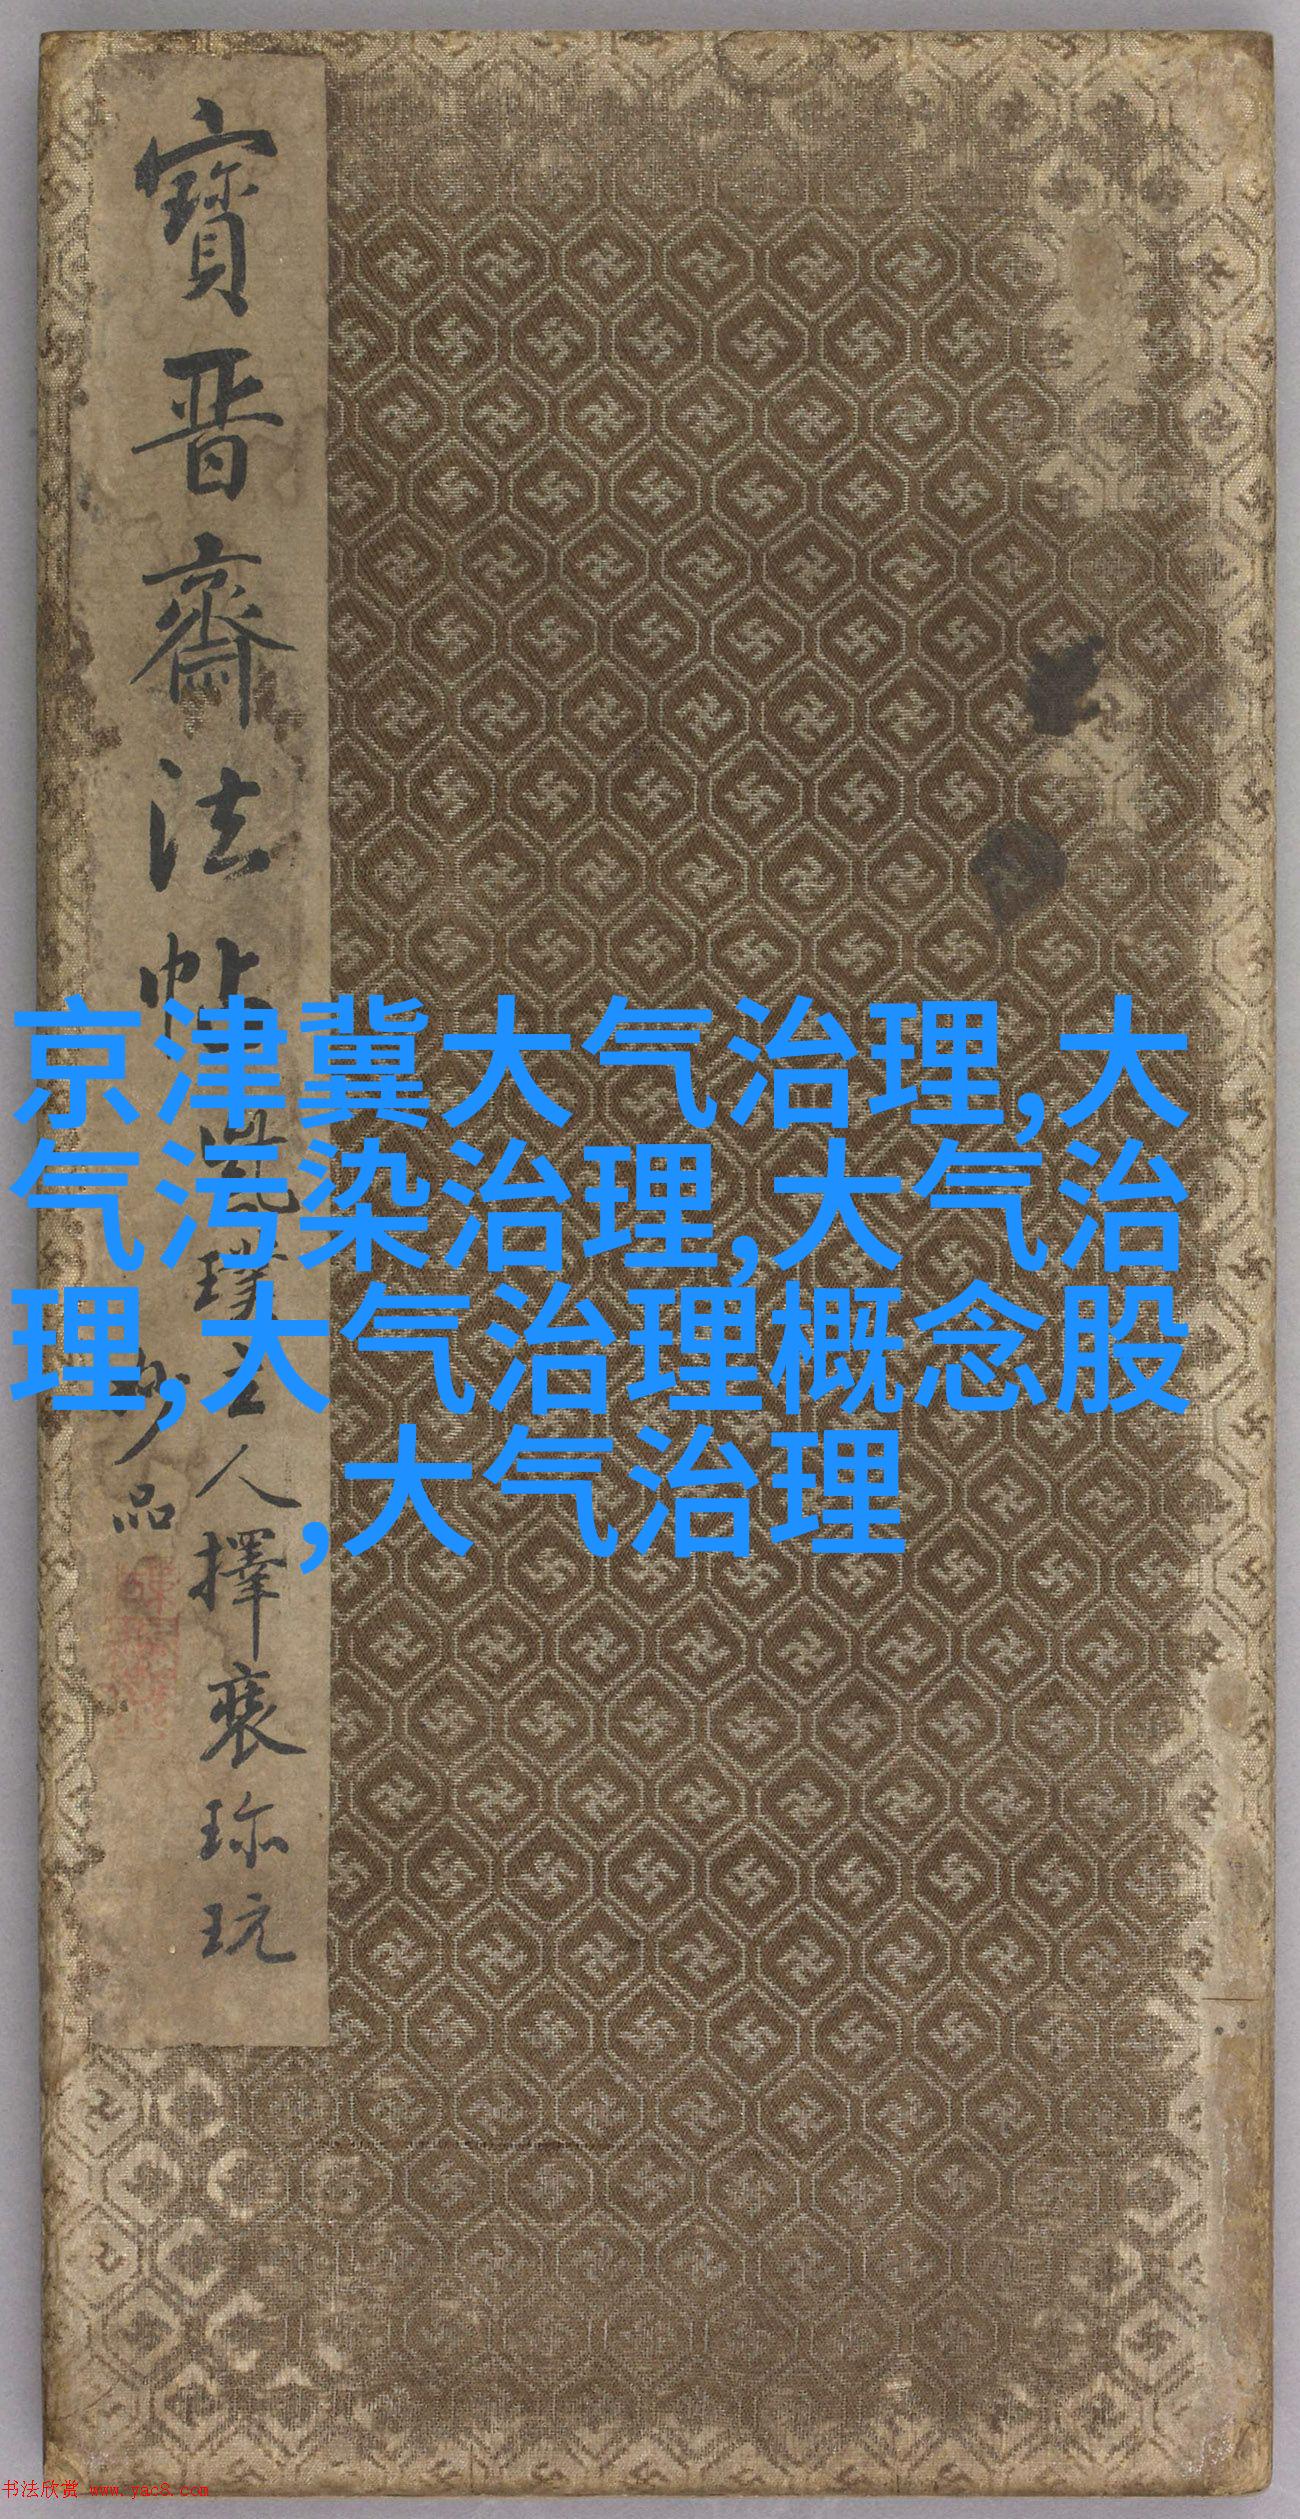 寶晋齋法帖
璞主人擇裘珎玩
品
京津冀大气治理,大
气污染治理,大气治
理,大气治理概念股
,大气治理
书法欣赏 www.yac8.com